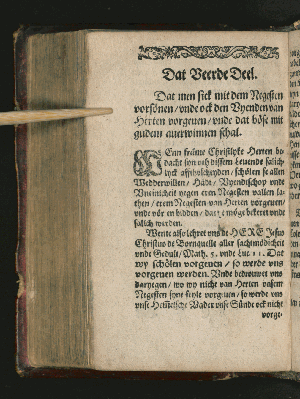 Dat Veerde Deel.
Dat men sick mit dem Negesten
vorsönen / vnde ock den Vyenden van
Herten vorgeuen / vnde dat böse mit
gudem auerwinnen schal.
WEnn frame Christlyke Herten
dacht syn vth dissem leuende salich
schölen se allen
Wedderwillen / Hadt / Vyendtschop vnde
Vneinicheit yegen eren Negesten vallen la-
then / erem Negesten van Herten vorgeuen /
vnde vör en bidden / dat se möge bekeret vnde
salich werden.
Wente also lehret vns de HERE Jesus
Christus de Bornquelle aller sachtmödicheit
vnde Gedult / Math. 5. vnde Luc. 11. Dat
wy schölen vorgeuen / so werde vns
vorgeuen werden. Vnde betruwet vns
daryegen / wo wy nicht van Herten vnsem
Negesten syne feyle vorgeuen / so werde vns
vnse Hemmelsche Vader vnse Sünde ock nicht
vorge-